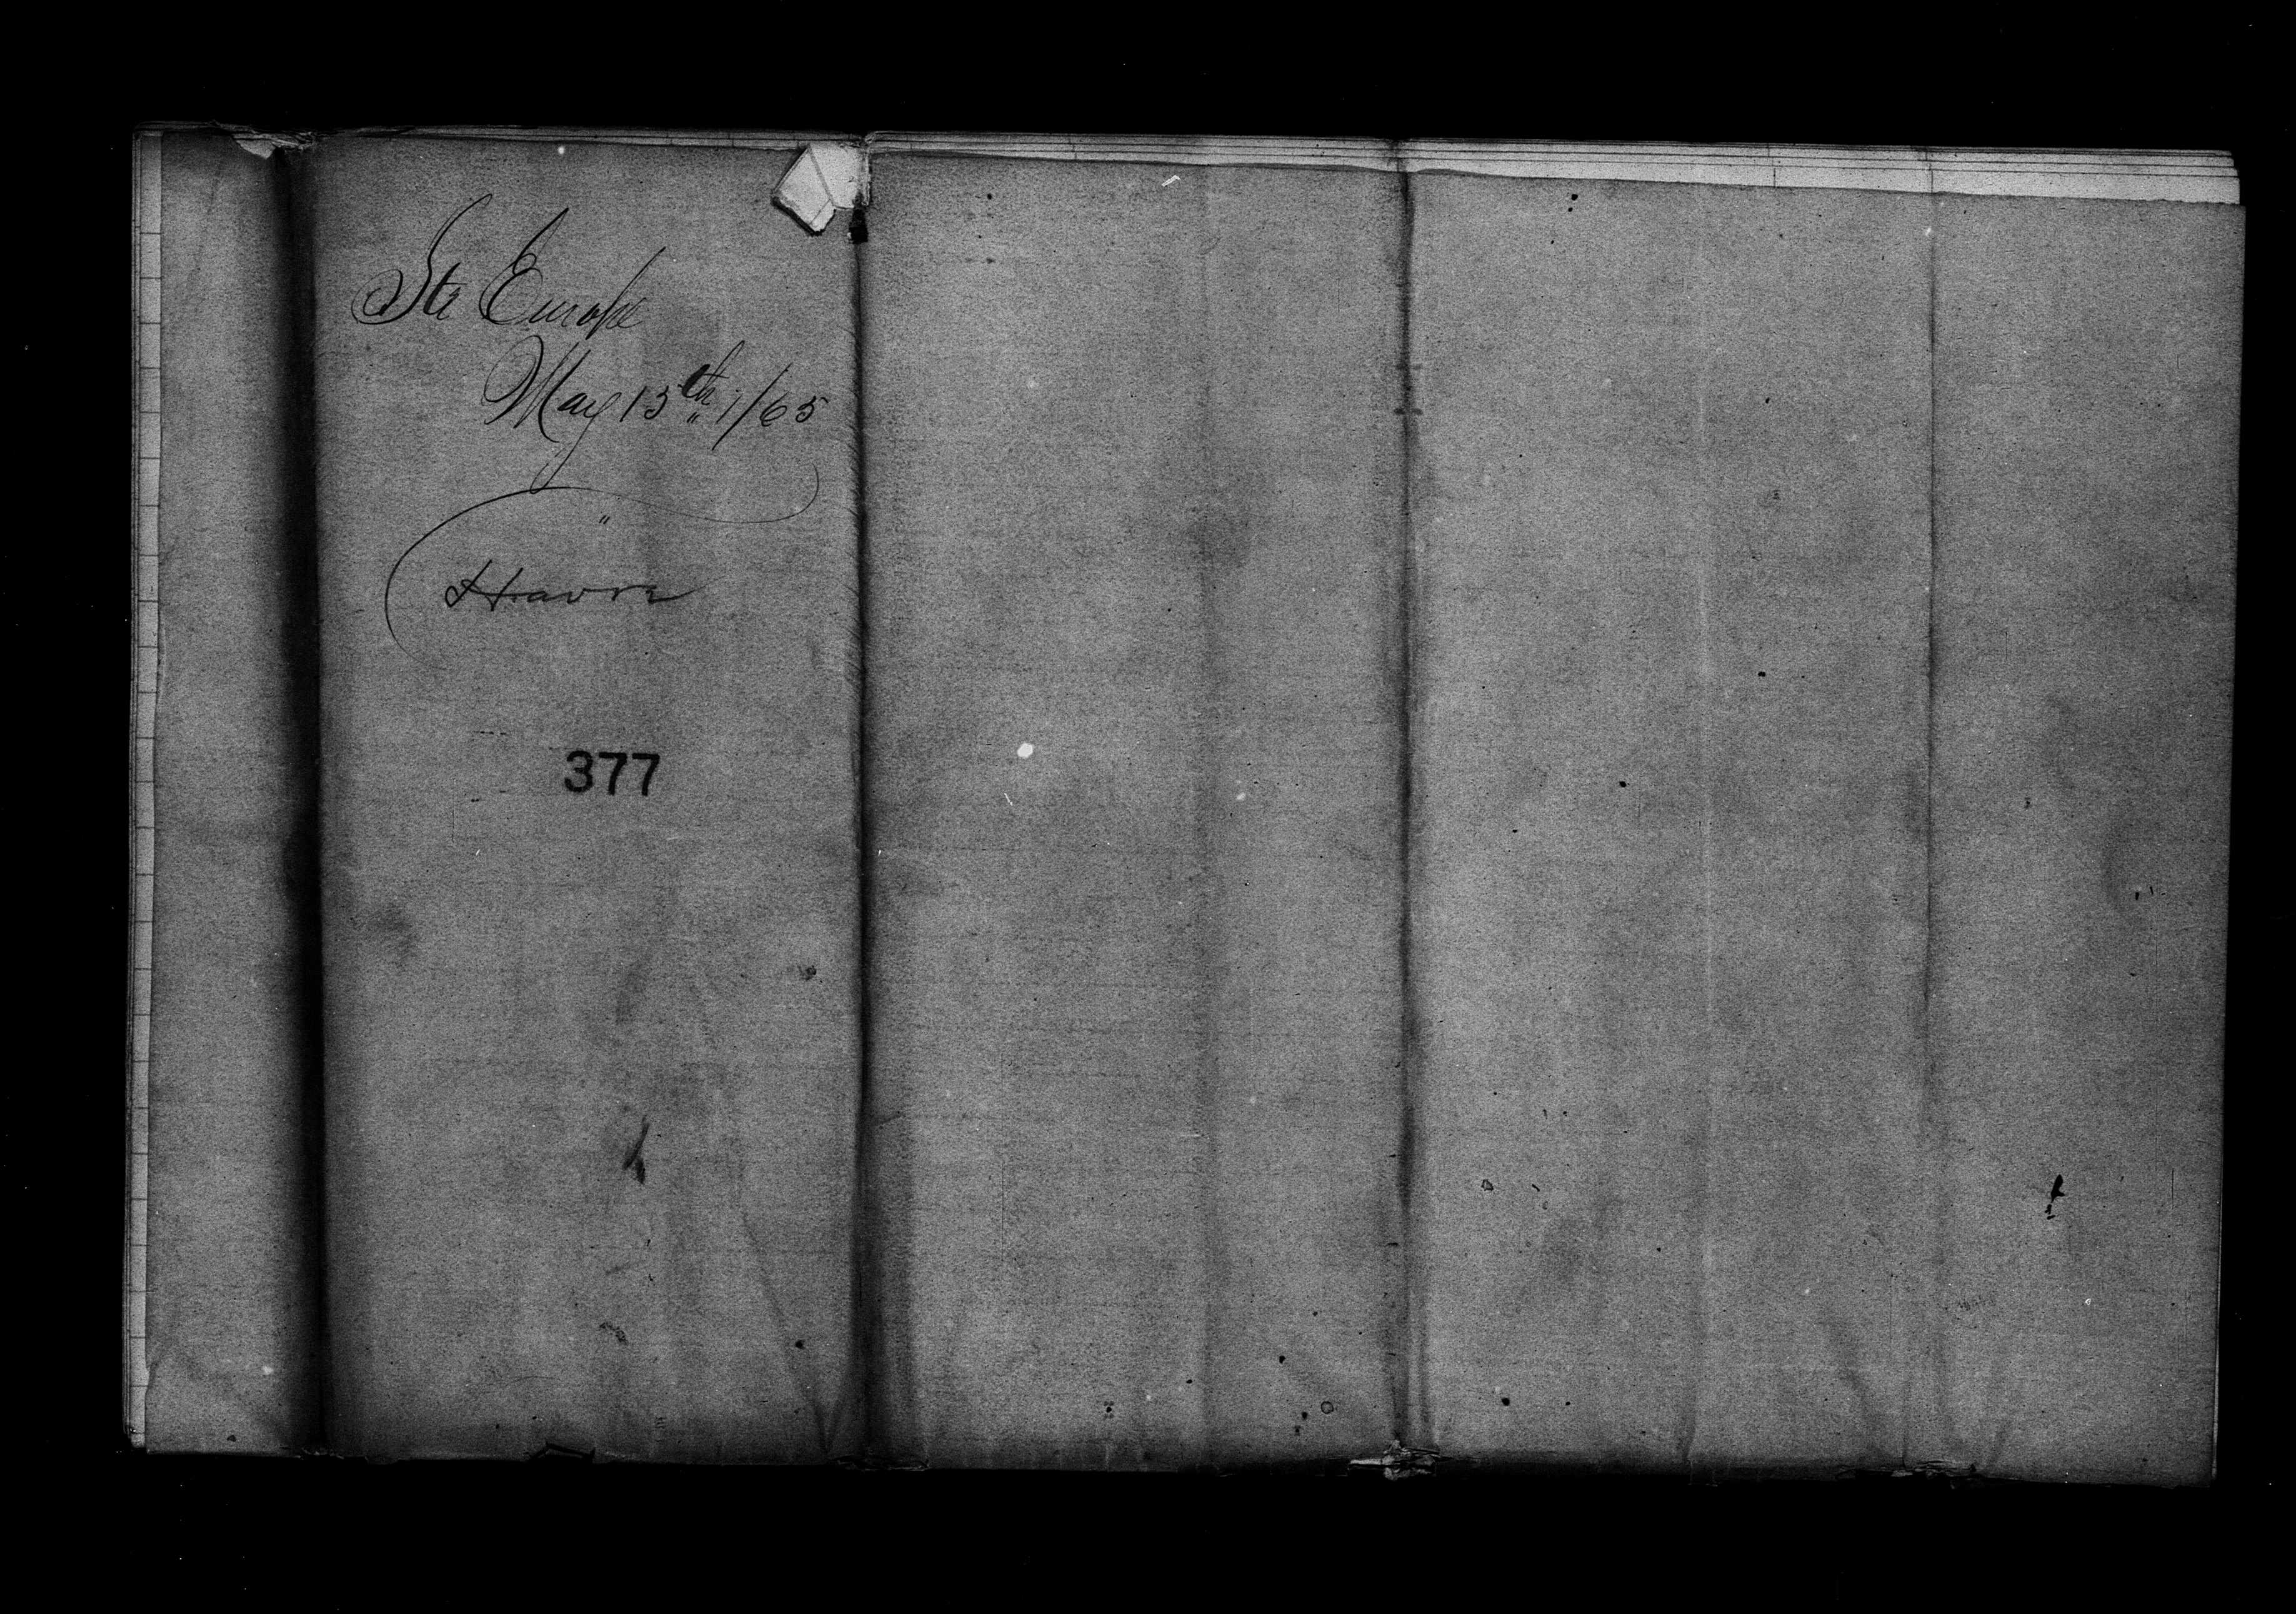 Str Europe
May 15th 1/65
"
Havre
377